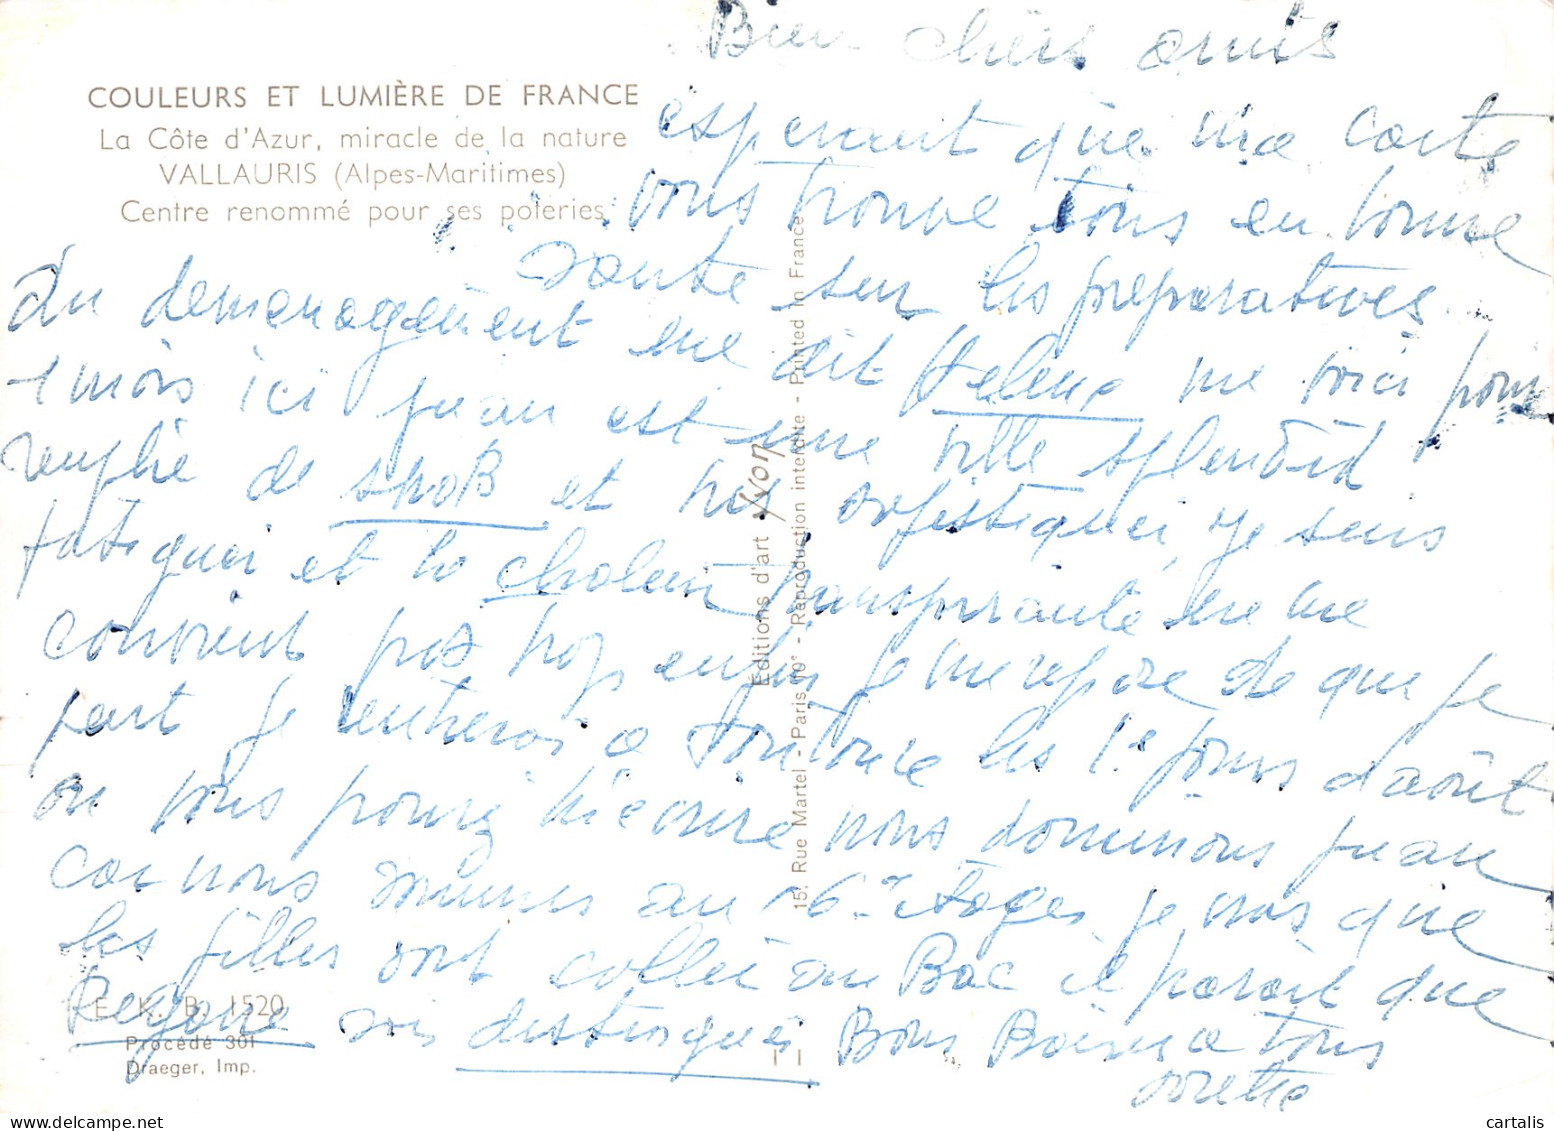 Bien chers amis
COULEURS ET LUMIÈRE DE FRANCE
La Côte d'Azur, miracle de la nature
VALLAURIS (Alpes-Maritimes)
Centre renommé pour ses poteries
esperant que ma carte
vous trouve tous en bonne
Sante sur les preparatives
du demenagement me dit Helene me voici pour
1 mois ici Juan est une ville splendid
remplie de et tres je suis
fatiguer et la chaleur transpirante ne me
convient pas trop enfin je me repose de que je
peut je rentrerai a Pontoise les 1e jours d'août
ou vous pourez m'ecrire nous dominons Juan
car nous sommes au 6m etages je vois que
les filles sont coller au Bac il parait que
sois distinguer Bons Baisers a tous
Editions d'art Yvon
15, Rue Martel - Paris 10e - Reproduction interdite - Printed in France
E. K. B. 1520
Procédé 301
Draeger, Imp.
cartalis